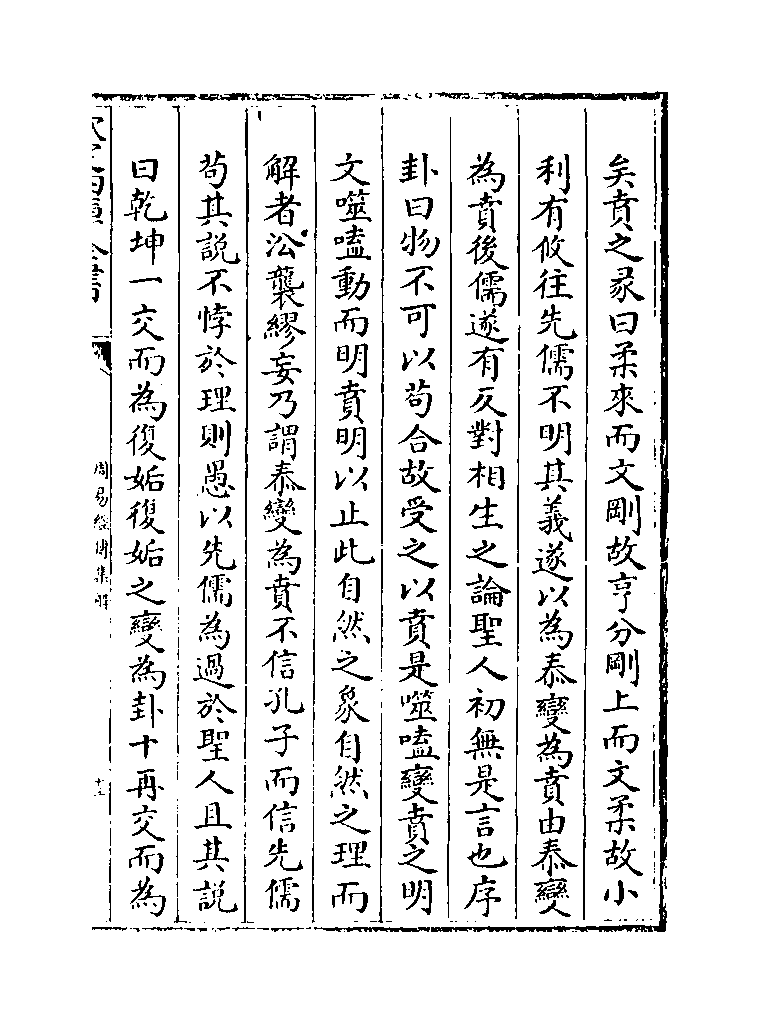 矣賁之彖曰柔來而文剛故亨分剛上而文柔故小
利有攸往先儒不明其義遂以為泰變為賁由泰變
為賁後儒遂有反對相生之論聖人初無是言也序
卦曰物不可以茍合故受之以賁是噬嗑變賁之明
文噬嗑動而明賁明以止此自然之象自然之理而
解者㳂襲繆妄乃謂泰變為賁不信孔子而信先儒
茍其說不悖於理則愚以先儒為過於聖人且其説
曰乾坤一交而為復姤復姤之變為卦十再交而為
欽定四庫全書
周易經傳集解